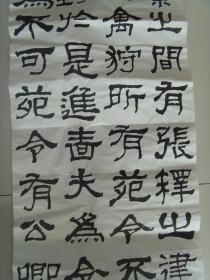 景之間有張釋之建
禽狩所有苑令不
對於是進嗇夫為令
為不可苑令有公卿